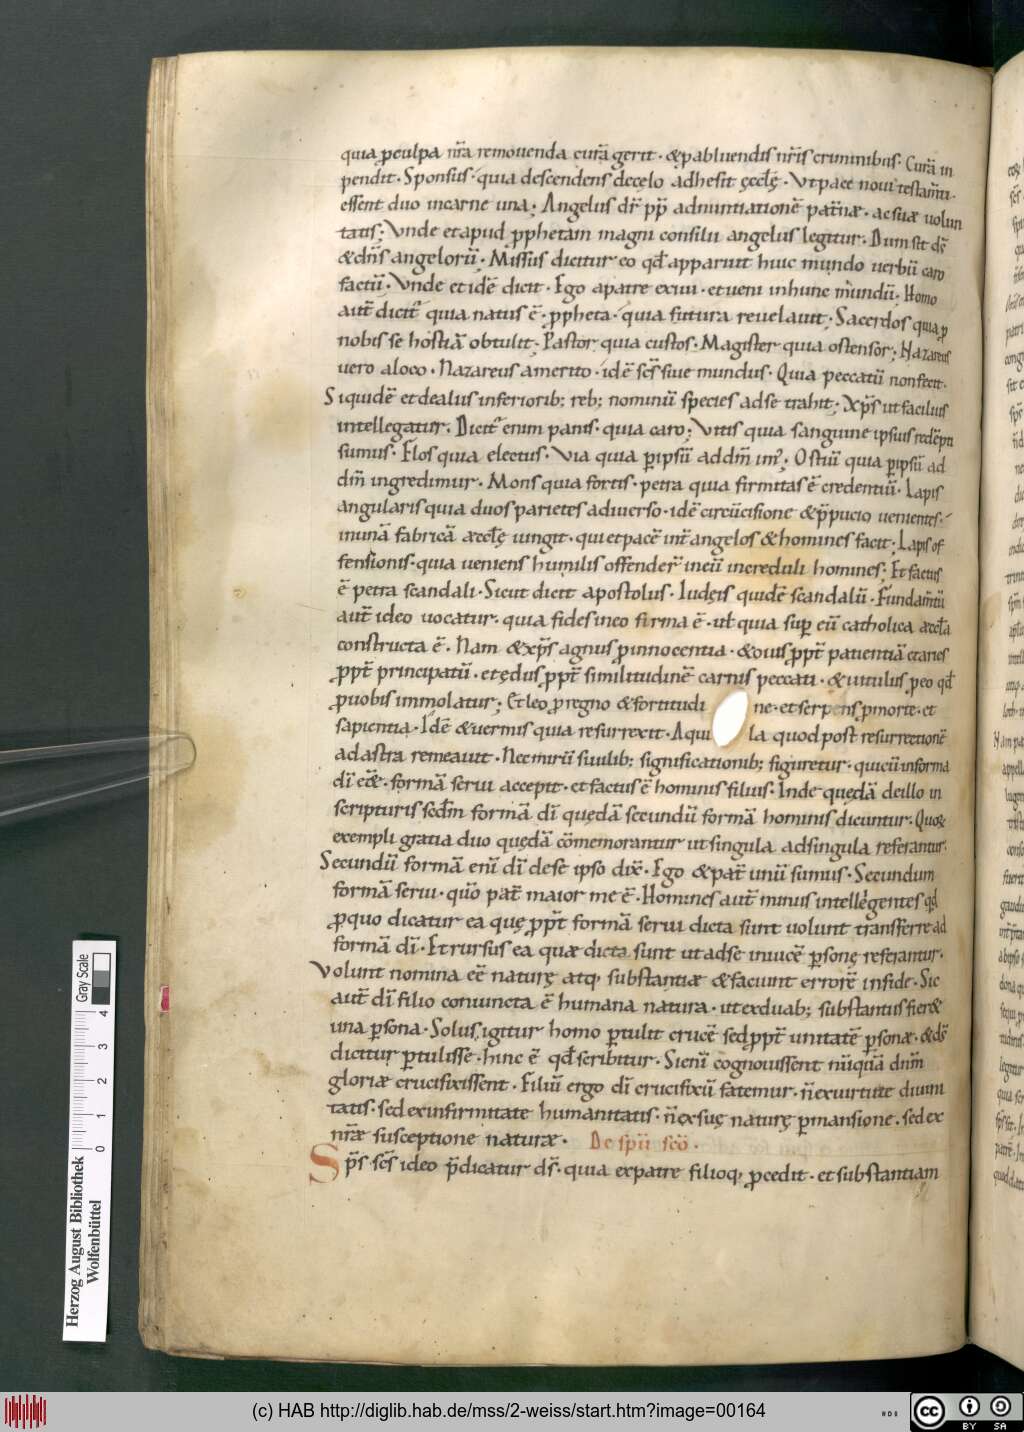 quia ꝓculpa nr̄a remouenda curā gerit · &pabluendis nr̄is criminibus · Curā in
pendit · Sponsus · quia descendens decęlo adhesit ęccl̄ę · Vt pace noui testam̄ti ·
essent duo incarne una; Angelus dr̄ pp̄ adnuntiationē pat̄næ · acsuæ uolun
tatis; Vnde etapud ꝓphetam magni consilii angelus legitur · Dum sit dS̄
&dn̄s angelorū · Missus dicitur eo qd̄ apparuit huic mundo uerbū caro
factū · Vnde et idē dicit · Ego apatre exiui · et ueni inhunc mundū · Homo
aut̄ dicit᷒ quia natus ē · ꝓpheta · quia futura reuelauit · Sacerdos quia ꝓ
nobis se hostiā obtulit; Pastor quia custos · Magister quia ostensor; Nazareus
uero aloco · Nazareus amerito · idē sc̄s siue mundus · Quia peccatū nonfecit ·
Siquidē etdealiis inferiorib; reb; nominū species adse trahit; Xp̄s ut facilius
intellegatur · Dicit᷒ enim panis · quia caro; Vitis quia sanguine ipsius redēpti
sumus · Flos quia electus · Via quia ꝑipsū addm̄ im᷒; Ostiū quia ꝑipsū ad
dm̄ ingredimur · Mons quia fortis · petra quia firmitas ē credentiū · Lapis
angularis quia duos parietes adiuerso · idē circūcisione &p̄pucio uenientes ·
inunā fabricā æccl̄ę iungit · qui etpacē int̄ angelos &homines facit · Lapis of
fensionis · quia ueniens humilis offender᷒ ineū increduli homines; Et factus
ē petra scandali · Sicut dicit apostolus · Iudęis quidē scandalū · Fundam̄tū
aut̄ ideo uocatur · quia fides ineo firma ē · ut quia suꝑ eū catholica æccl̄a
constructa ē · Nam &xp̄s agnus ꝓinnocentia · &ouis ꝓpt̄ patientiā etaries
ꝓpt̄ principatū · etędus ꝓpt̄ similitudinē carnis peccati · &uitulus ꝓeo qd̄
ꝓnobis immolatur; Etleo ꝓregno &fortitudi ne · et serpens ꝓmorte · et
sapientia · Idē &uermis quia resurrexit · Aqui la quod post resurrectionē
adastra remeauit · Nec mirū siuilib; significationib; figuretur · quicū informa
dī eē& · formā serui accepit · et factus ē hominis filius · Inde quędā deillo in
scripturis sedm̄ formā dī quędā secundū formā hominis dicuntur · Quo&
exempli gratia duo quędā cōmemorantur ut singula adsingula referantur ·
Secundū formā enī dī dese ipso dix̄ · Ego &pat̄ unū sumus · Secundum
formā serui · qūo pat̄ maior me ē · Homines aut̄ minus intellegentes qd̄
ꝓquo dicatur ea quę ꝓpt̄ formā serui dicta sunt uolunt transferre ad
formā dī · Et rursus ea quæ dicta sunt ut adse inuicē ꝑsonę referantur ·
Volunt nomina eē naturę atq, substantiæ &faciunt errorē infide · Sic
aut̄ dī filio coniuncta ē humana natura · ut exduab; substantiis fier&
una ꝑsona · Solus igitur homo ꝑtulit crucē sed ꝓpt̄ unitatē ꝑsonæ · &dS̄
dicitur ꝑtulisse · hinc ē qd̄ scribitur · Sienī cognouissent nūquā dnm̄
gloriæ crucifixissent · Filiū ergo dī crucifixū fatemur · n̄ exuirtute diuini
tatis · sed exinfirmitate humanitatis · n̄ exsuę naturę ꝑmansione · sed ex
nr̄æ susceptione naturæ · De sp̄u sc̄o ·
Sp̄s sc̄s ideo p̄dicatur ds̄ · quia expatre filioq, ꝓcedit · et substantiam
Herzog August Bibliothek
Wolfenbüttel
0 1 2 3 4
Gray Scale
(c) HAB http://diglib.hab.de/mss/2-weiss/start.htm?image=00164
cc
BY SA